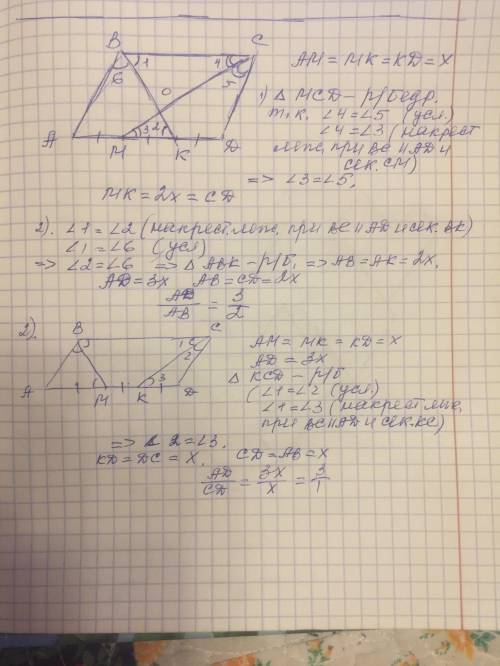 B
C
1
4
6
5
O
3
2
A
M
K
D
AM = MK = KD = x
1) Δ MCD – р/бедр.
т.к. ∠4=∠5 (усл)
∠4=∠3 (накрест
леж, при BC II AD и
сек. CM)
=> ∠3=∠5,
MK = 2x = CD
2). ∠1=∠2 (накрест.леж, при BC II AD и сек. BK)
∠1=∠6 (усл)
=> ∠2=∠6 => Δ ABK – р/б, => AB = AK = 2x,
AD = 3x AB = CD = 2x
AD/AB = 3/2
2).
B
C
1
2
3
A
M
K
D
AM = MK = KD = x
AD = 3x
Δ KCD – р/б
(∠1=∠2 (усл)
∠1=∠3 (накрест леж,
при BC II AD и сек. KC)
=> ∠2=∠3.
KD = DC = x, CD = AB = x
AD/CD = 3x/x = 3/1